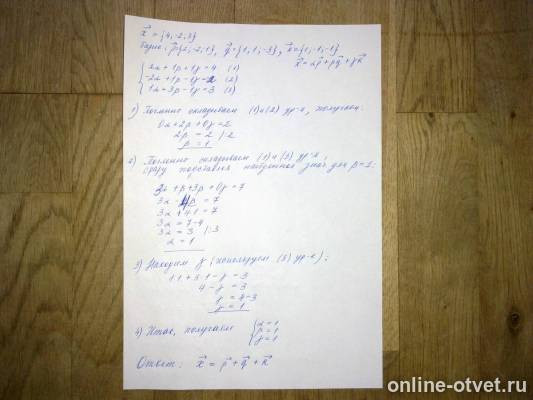 x⃗ = {4; -2; 3}
Базис: p⃗{2; -2; 1}, q⃗ = {1; 1; -3}, r⃗ = {1; -1; -1}
x⃗ = αp⃗ + βq⃗ + γr⃗
2α + 1β + 1γ = 4 (1)
-2α + 1β - 1γ = -2 (2)
1α + 3β - 1γ = 3 (3)
1) Почленно складываем (1) и (2) ур-я, получаем:
0α + 2β + 0γ = 2
2β = 2 |:2
β = 1
2) Почленно складываем (1) и (3) ур-я,
сразу подставляя найденное знач. для β = 1:
3α + β + 3β + 0γ = 7
3α + 4β = 7
3α + 4·1 = 7
3α = 7-4
3α = 3 |:3
α = 1
3) Находим γ (используем (3) ур-е);
1·1 + 3·1 - γ = 3
4 - γ = 3
γ = 4-3
γ = 1
4) Итак, получаем
α = 1
β = 1
γ = 1
Ответ: x⃗ = p⃗ + q⃗ + r⃗
online-otvet.ru